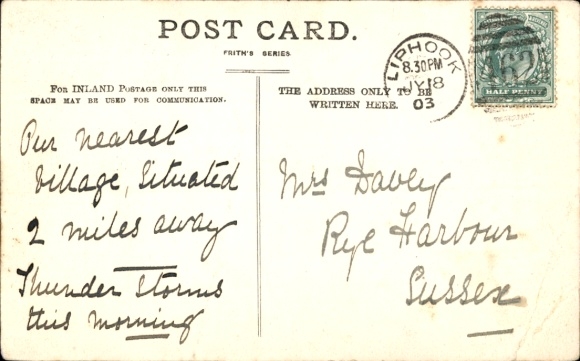 POST CARD.
FRITH'S SERIES
FOR INLAND POSTAGE ONLY THIS
SPACE MAY BE USED FOR COMMUNICATION.
THE ADDRESS ONLY TO BE
WRITTEN HERE.
LIPHOOK
8.30PM
JY 18
03
HALF PENNY
Our nearest
village, situated
2 miles away
Thunder Storms
this morning
Mrs Davey
Rye Harbour
Sussex